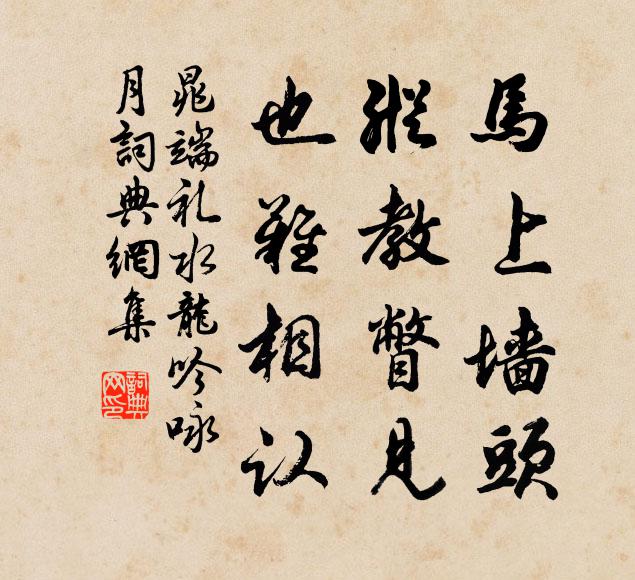 馬上墙頭
縱教瞥見
也難相认
晁端礼水龍吟咏
月詞典網集
詞典
网印